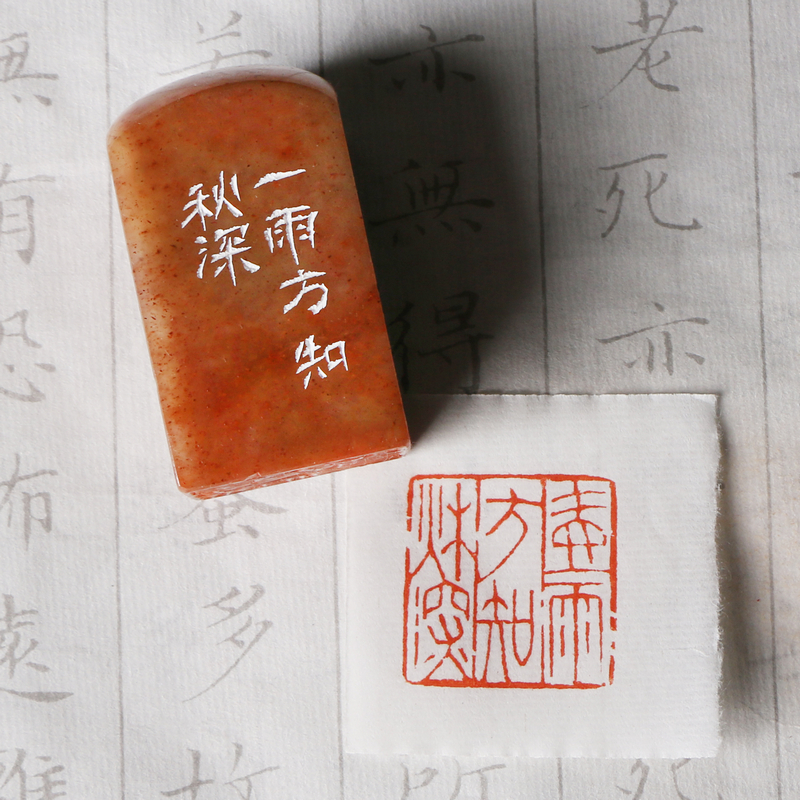 一雨方知
秋深
雨
方知
秋深
老死亦
死
亦無得
所
若
蜜多故
無有恐怖遠離